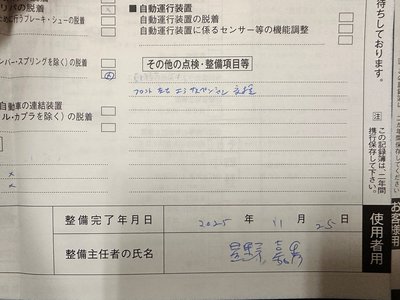 リパの脱着
ために行うブレーキ・シューの脱着
■自動運行装置
自動運行装置の脱着
自動運行装置に係るセンサー等の機能調整
ンバー・スプリングを除く)の脱着
その他の点検・整備項目等
フロント 左右 エアサスペンション 交換
自動車の連結装置
ル・カプラを除く)の脱着
整備完了年月日 2025 年 11 月 25 日
整備主任者の氏名 星野
待ちしております。
注 この記録簿は、二年間
携行保存して下さい。
使用者用
お客様用